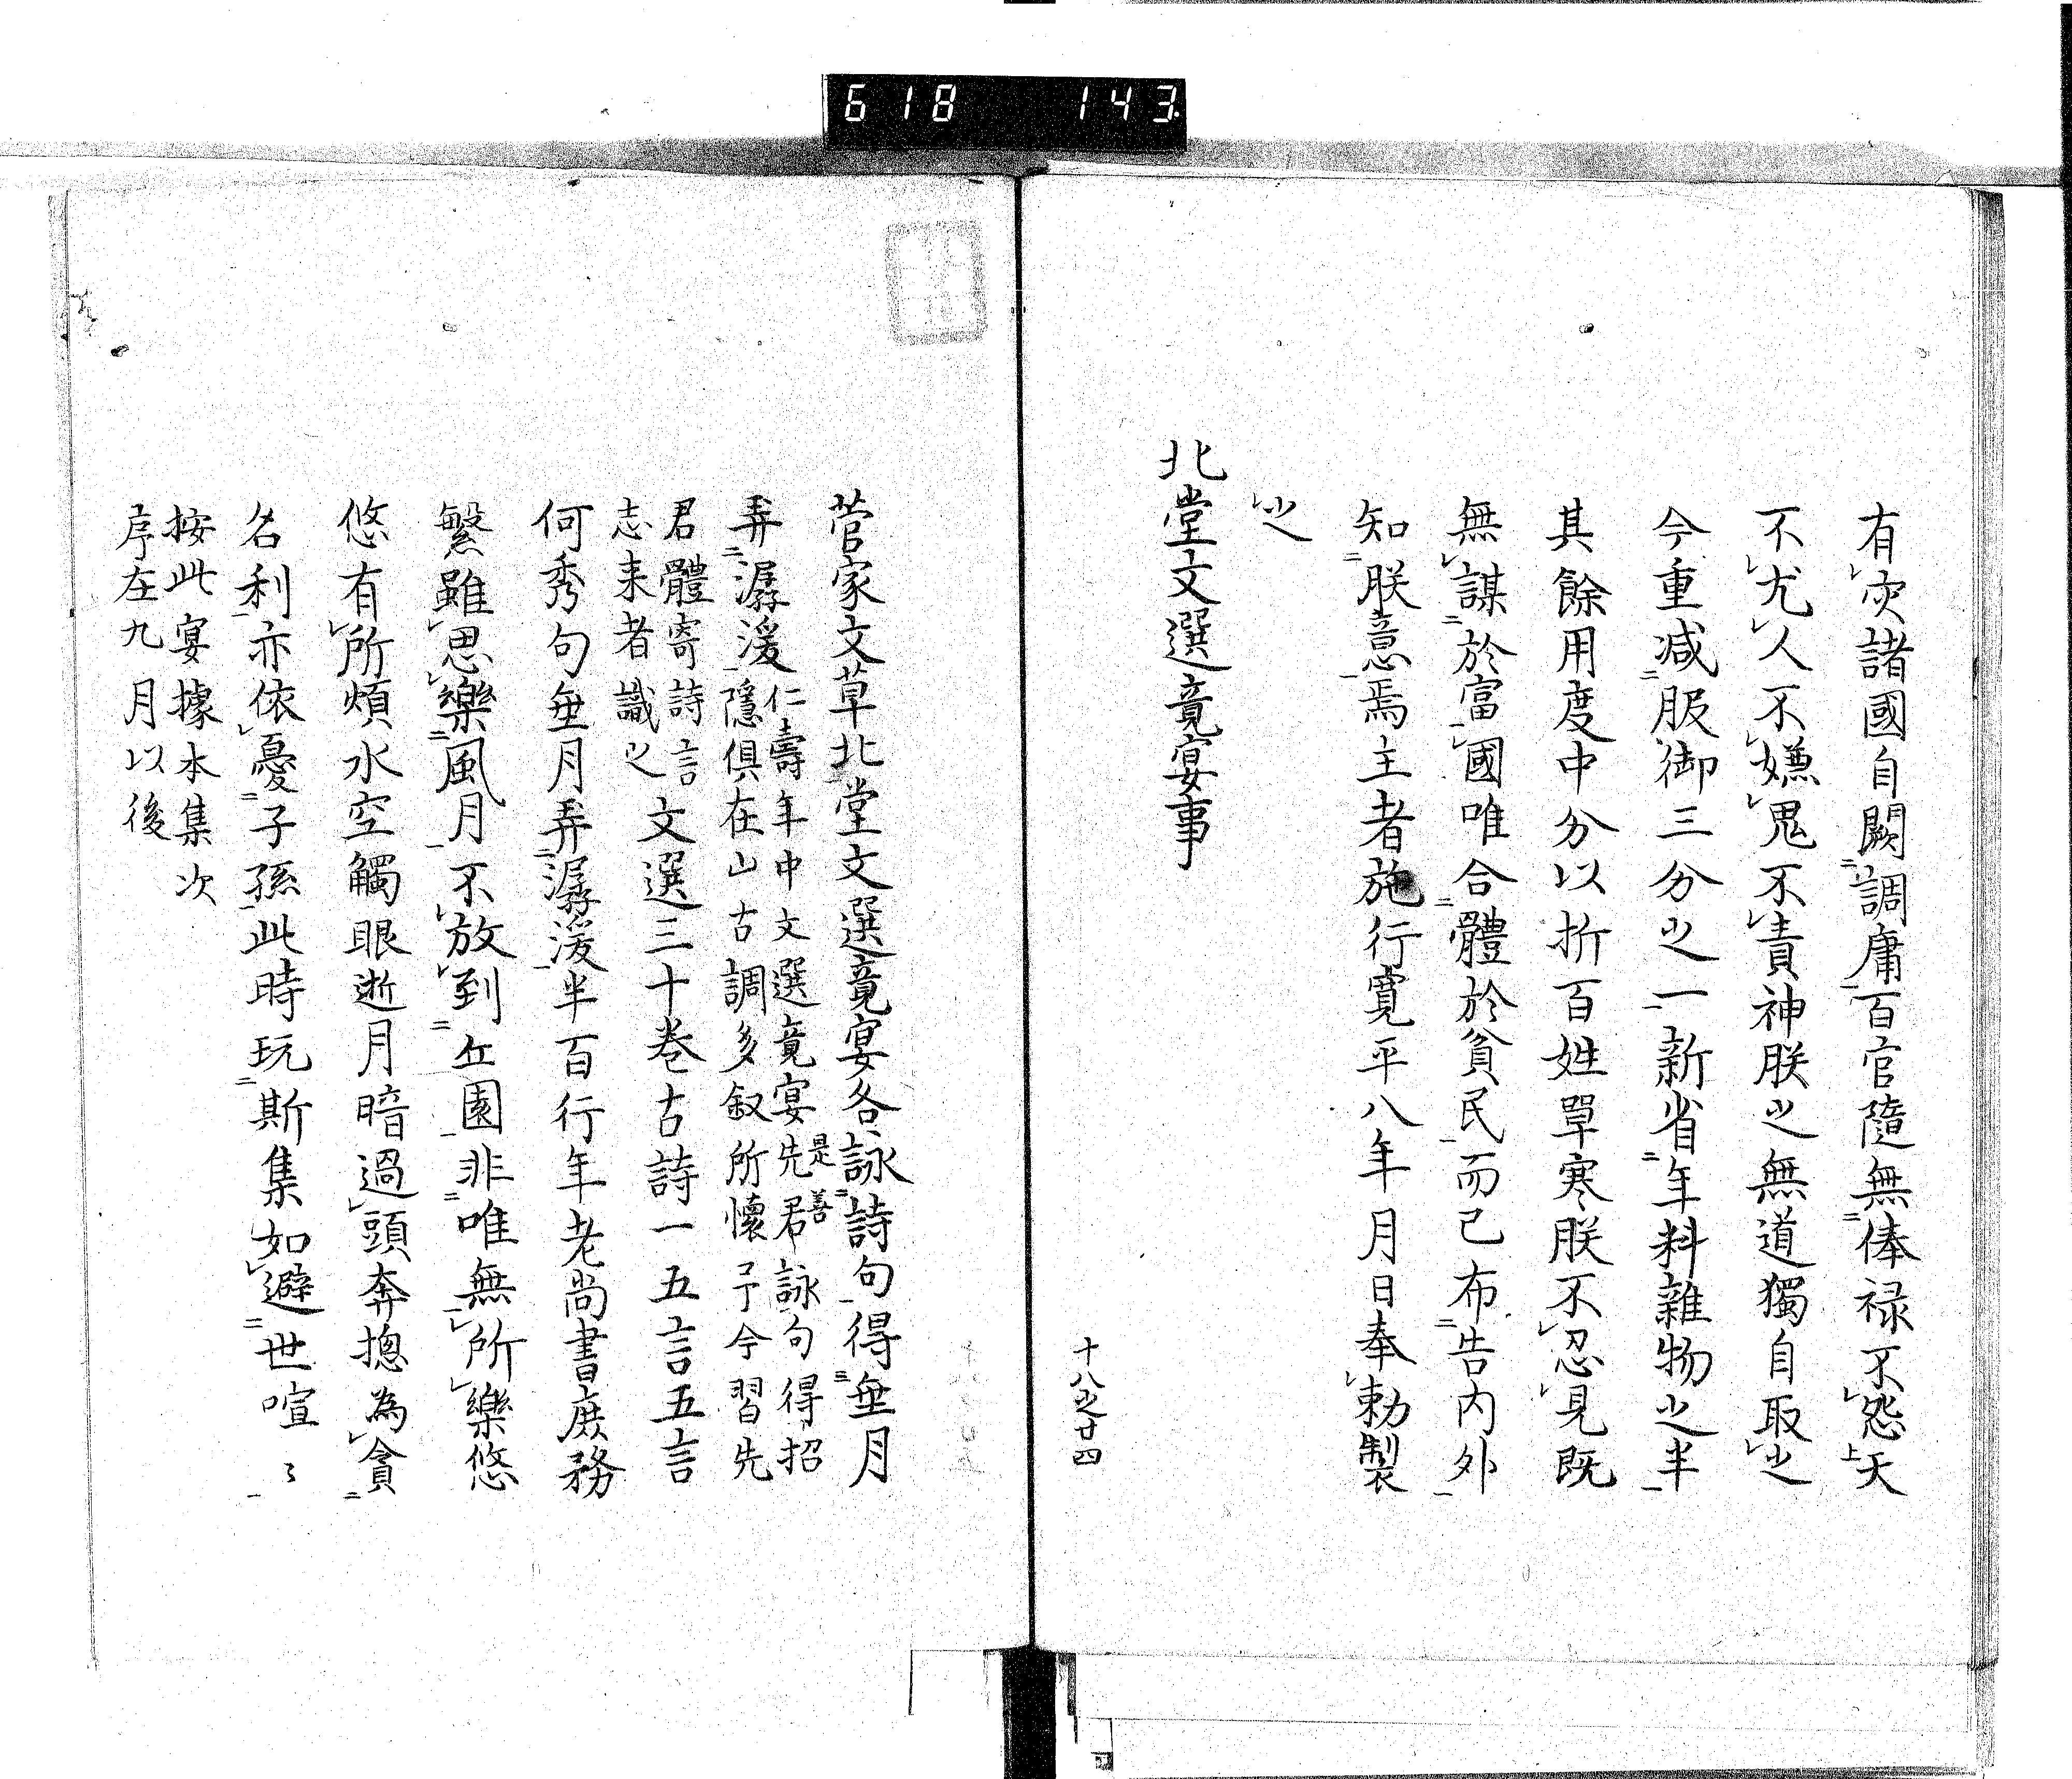 618 143
有灾諸國自闕調庸百官隨無俸禄不怨天
不尤人不嫌鬼不責神朕之無道獨自取之
今重減服御三分之一新省年料雜物之半
其餘用度中分以折百姓單寒朕不忍見既
無謀於富國唯合體於貧民而已布告内外
知朕意焉主者施行寛平八年月日奉勅製
之
北堂文選竟宴事
十八之廿四
菅家文草北堂文選竟宴各詠詩句得垂月
弄潺湲仁壽年中文選竟宴先君是善詠句得招
隱俱在山古調多叙所懷予今習先
君體寄詩言
志来者識之文選三十巻古詩一五言五言
何秀句垂月弄潺湲半百行年老尚書庶務
繁雖思樂風月不放到丘園非唯無所樂悠
悠有所煩水空觸眼逝月暗過頭奔揔為貪
名利亦依憂子孫此時玩斯集如避世喧々
按此宴據本集次
序在九月以後